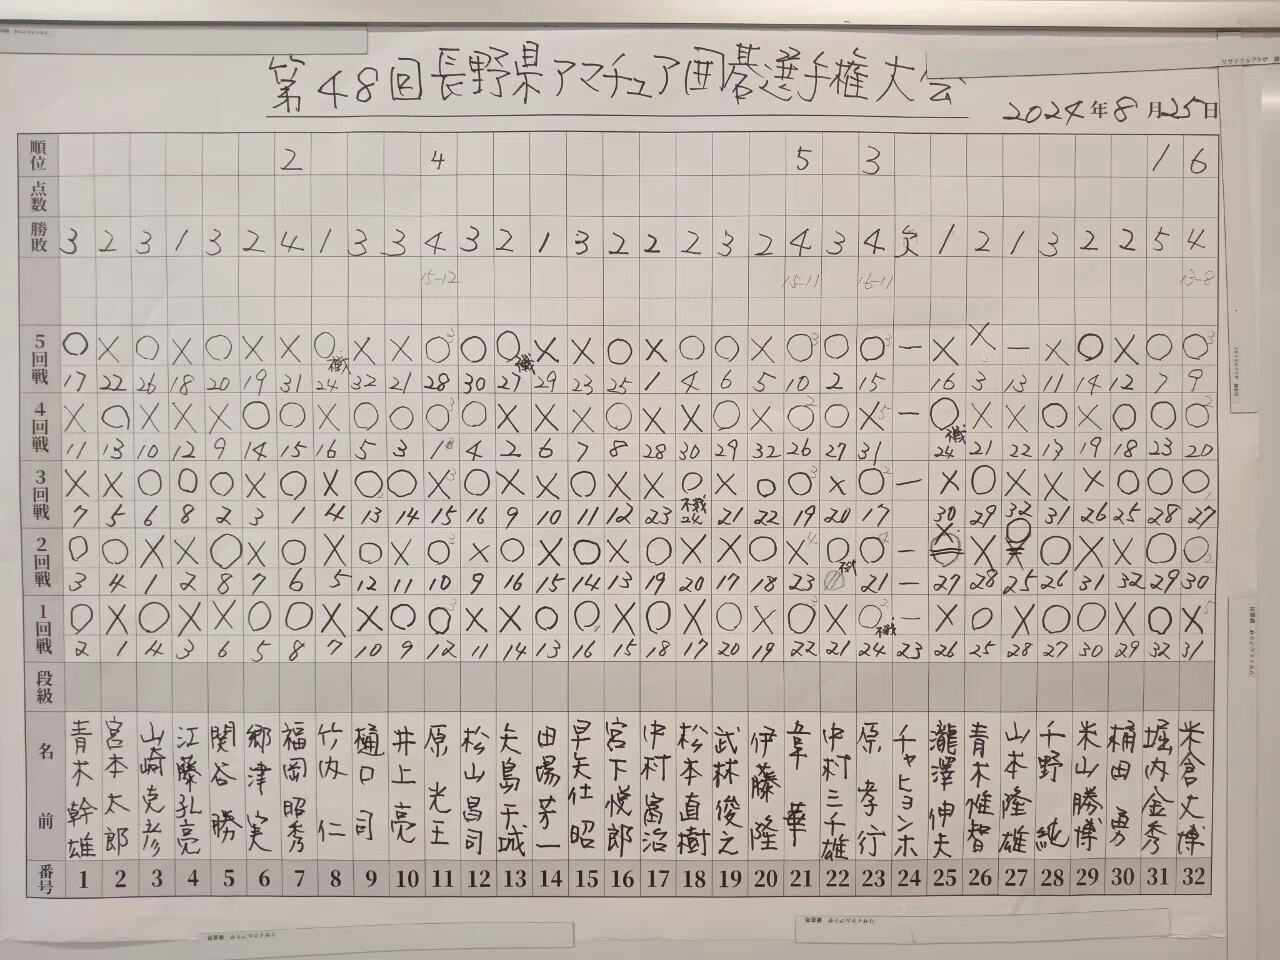 第48回長野県アマチュア囲碁選手権大会
2024年8月25日
順位 2 4 5 3 1 6
点数
勝敗 3 2 3 1 3 2 4 1 3 3 4 3 2 1 3 2 2 2 3 2 4 3 4 欠 1 2 1 3 2 2 5 4
15-12 15-11 16-11 13-8
5回戦 ○ × ○ × ○ × × ○ × × ○ ○ ○ × × ○ × ○ ○ ○ ○ ○ ○ — × × — × ○ × ○ ○
17 22 26 18 20 19 31 24 32 21 28 30 27 29 23 25 1 4 6 5 10 2 15 16 3 13 11 14 12 7 9
4回戦 × ○ × × × ○ ○ × ○ ○ ○ ○ × × × ○ × × ○ × ○ ○ × — ○ × × ○ × ○ ○ ○
11 13 10 12 9 14 15 16 5 3 18 4 2 6 7 8 28 30 29 32 26 27 31 24 21 22 13 19 18 23 20
3回戦 × × ○ ○ ○ × ○ × ○ ○ × ○ × × ○ × × ○ × ○ ○ × ○ — × ○ × × × ○ ○ ○
7 5 6 8 2 3 1 4 13 14 15 16 9 10 11 12 23 24 21 22 19 20 17 30 29 32 31 26 25 28 27
2回戦 ○ ○ × × ○ × ○ × ○ × ○ × ○ × ○ × ○ × × ○ × ○ ○ — × × ○ ○ × × ○ ○
3 4 1 2 8 7 6 5 12 11 10 9 16 15 14 13 19 20 17 18 23 21 — 27 28 25 26 31 32 29 30
1回戦 ○ × ○ × × ○ ○ × × ○ ○ × × ○ ○ × ○ × ○ × ○ × ○ — × ○ × ○ ○ × ○ ×
2 1 4 3 6 5 8 7 10 9 12 11 14 13 16 15 18 17 20 19 22 21 24 23 26 25 28 27 30 29 32 31
段級
名前 青木幹雄 宮本太郎 山崎克彦 江藤孔亮 関谷勝 郷津実 福岡昭秀 竹内仁 樋口司 井上亮 原光王 松山昌司 矢島千城 田陽芳一 早矢仕昭 宮下悦郎 中村富治 松本直樹 武林俊之 伊藤隆 韋華 中村三千雄 原孝行 チャヒョンホ 瀧澤伸夫 青木惟智 山本隆雄 千野純 米山勝博 桶田勇 堀内金秀 米倉丈博
番号 1 2 3 4 5 6 7 8 9 10 11 12 13 14 15 16 17 18 19 20 21 22 23 24 25 26 27 28 29 30 31 32